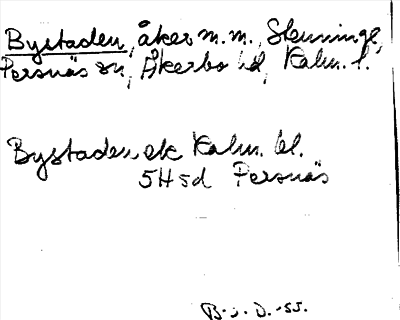 Bystaden, åker m.m., Stenninge,
Persnäs sn, Åkerbo hd, Kalm. l.
Bystaden ek Kalm. bl.
5H5d Persnäs
B.J.D.-55.